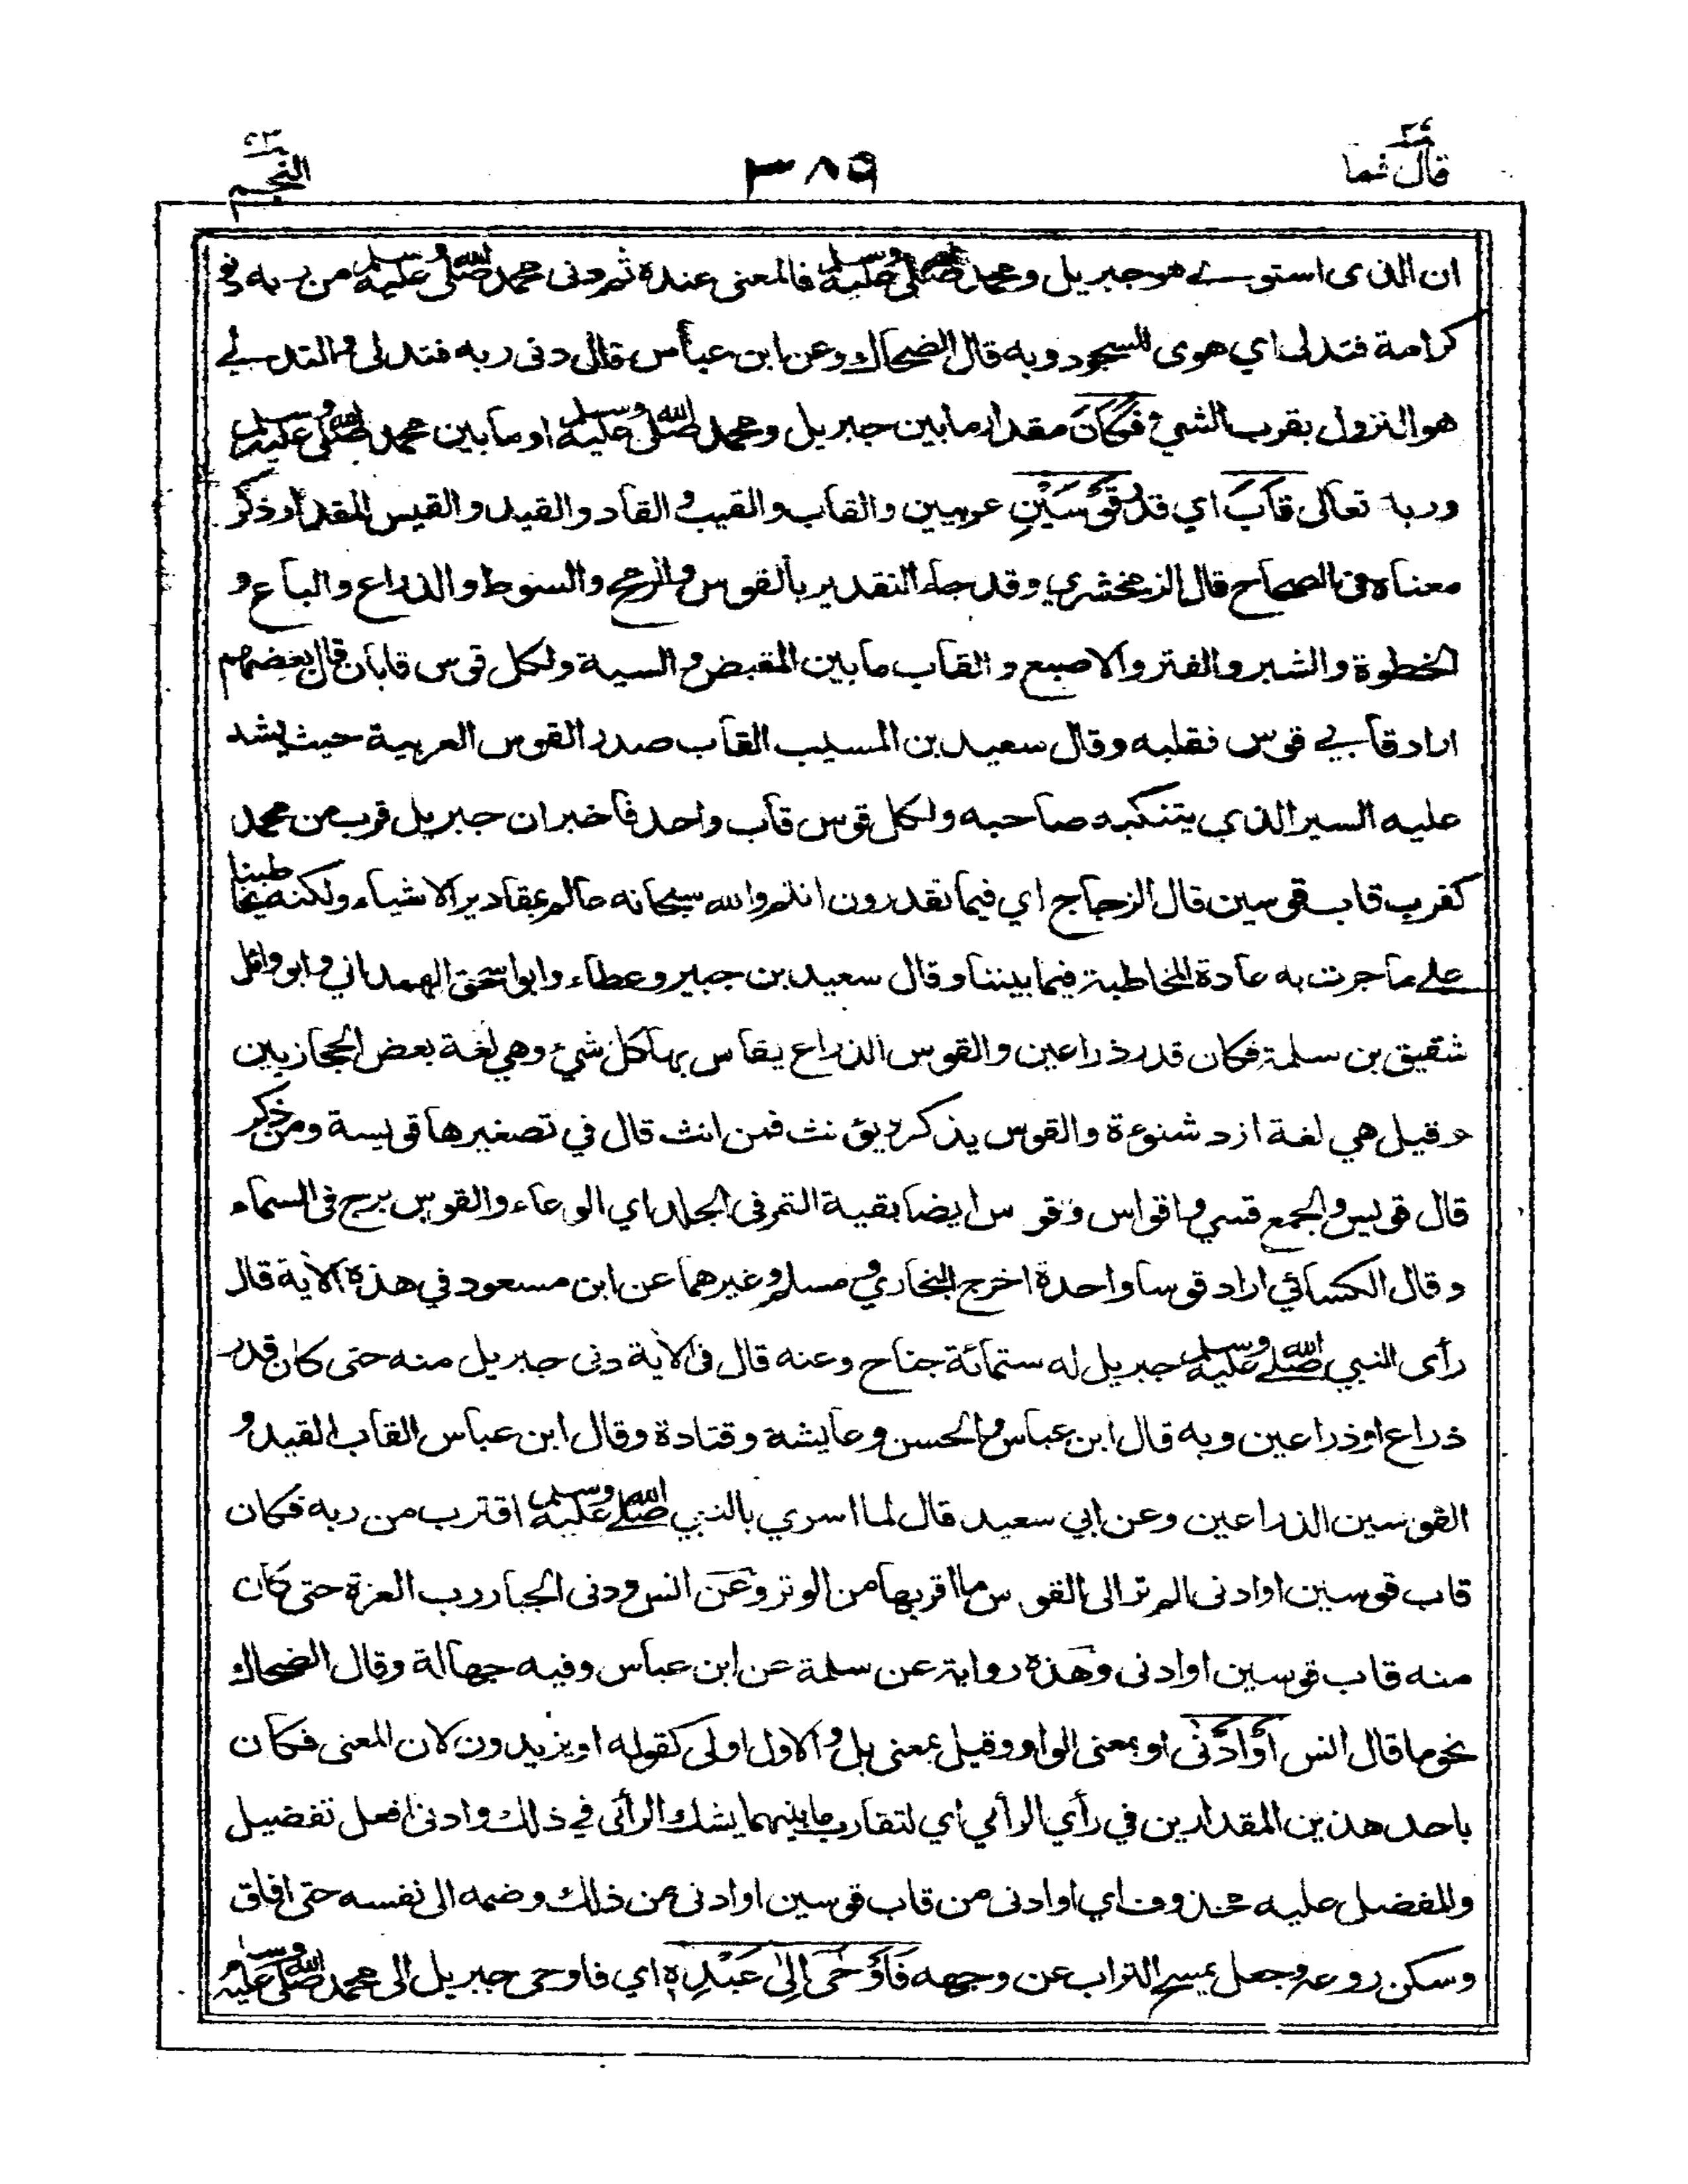 قال فما ٢٧
٣٨٩
النجم ٥٣
ان الذی استوے هو جبريل ومحمد صلى الله عليه وسلم فالمعنى عنده ثم دنى محمد صلى الله عليه وسلم من ربه في
كرامة فتدلى اي هوى للسجود وبه قال الضحاك وعن ابن عباس قال دنى ربه فتدلى والتدلے
هو النزول بقرب الشيء فَكَانَ مقدار ما بين جبريل ومحمد صلى الله عليه وسلم او ما بين محمد صلى الله عليه وسلم
وربه تعالى قَابَ اي قدر قَوْسَيْنِ عربيين والقاب والقيب والقاد والقيد والقيس المقدار ذكر
معناه فى الصحاح قال الزمخشري وقد جاء التقدير بالقوس والرمح والسوط والذراع والباع و
الخطوة والشبر والفتر والاصبع و القاب ما بين المقبض والسية ولكل قوس قابان قال بعضهم
اراد قابي قوس فقلبه وقال سعيد بن المسيب القاب صدر القوس العربية حيث يشد
عليه السير الذي يتنكبه صاحبه ولكل قوس قاب واحد فاخبر ان جبريل قرب من محمد
كقرب قاب قوسين قال الزجاج اي فيما تقدرون انتم والله سبحانه عالم بمقادير الاشياء ولكنه يخاطبنا
علے ما جرت به عادة المخاطبة فيما بيننا وقال سعيد بن جبير وعطاء وابو اسحق الهمداني وابو وائل
شقيق بن سلمة فكان قدر ذراعين والقوس الذراع يقاس بها كل شيء وهي لغة بعض الحجازيين
وقيل هي لغة ازد شنوءة والقوس يذكر ويؤنث فمن انث قال في تصغيرها قويسة ومن ذكر
قال قويس والجمع قسي واقواس وقوس ايضا بقية التمر فى الجلد اي الوعاء والقوس برج فى السماء
وقال الكسائي اراد قوسا واحدة اخرج البخاري ومسلم وغيرهما عن ابن مسعود في هذه الآية قال
رأى النبي صلى الله عليه وسلم جبريل له ستمائة جناح وعنه قال فى الآية دنى جبريل منه حتى كان قدر
ذراع او ذراعين وبه قال ابن عباس والحسن وعايشة وقتادة وقال ابن عباس القاب القيد و
القوسين الذراعين وعن ابي سعيد قال لما اسري بالنبي صلى الله عليه وسلم اقترب من ربه فكان
قاب قوسين او ادنى الم تر الى القوس ما اقربها من الوتر وعن انس ودنى الجبار رب العزة حتى كان
منه قاب قوسين او ادنى وهذه رواية عن سلمة عن ابن عباس وفيه جهالة وقال الضحاك
نحو ما قال انس أَوْ أَدْنَى او بمعنى الواو وقيل بمعنى بل والاول اولى كقوله او يزيدون لان المعنى فكان
باحد هذين المقدارين في رأي الرأي اي لتقارب ما بينهما يشك الرأى في ذلك وادنى افعل تفضيل
والمفضل عليه محذوف اي او ادنى من قاب قوسين او ادنى من ذلك وضمه الى نفسه حتى افاق
وسكن روعه وجعل يمسح التراب عن وجهه فَأَوْحَى إِلَى عَبْدِهِ اي فاوحى جبريل الى محمد صلى الله عليه وسلم